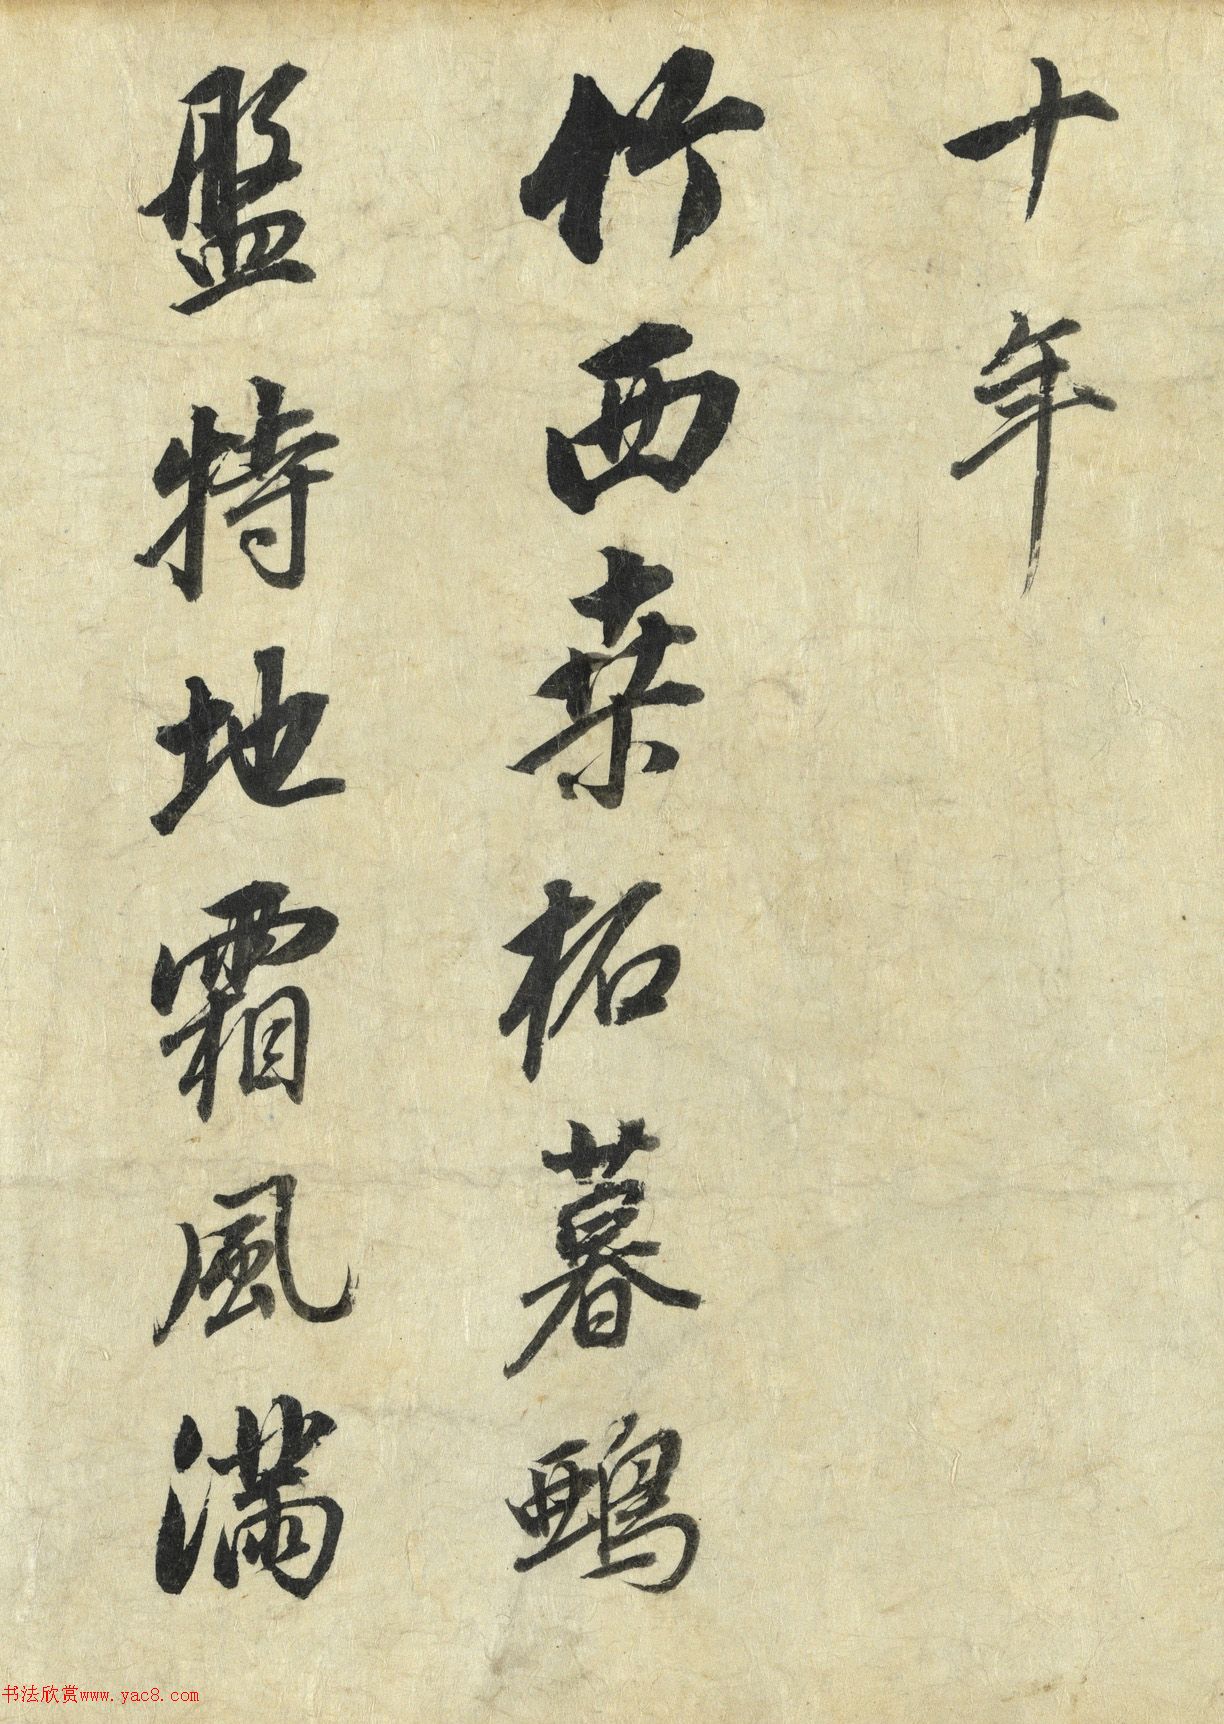 十年
竹西桒柘暮鵶
盤特地霜風滿
书法欣赏www.yac8.com